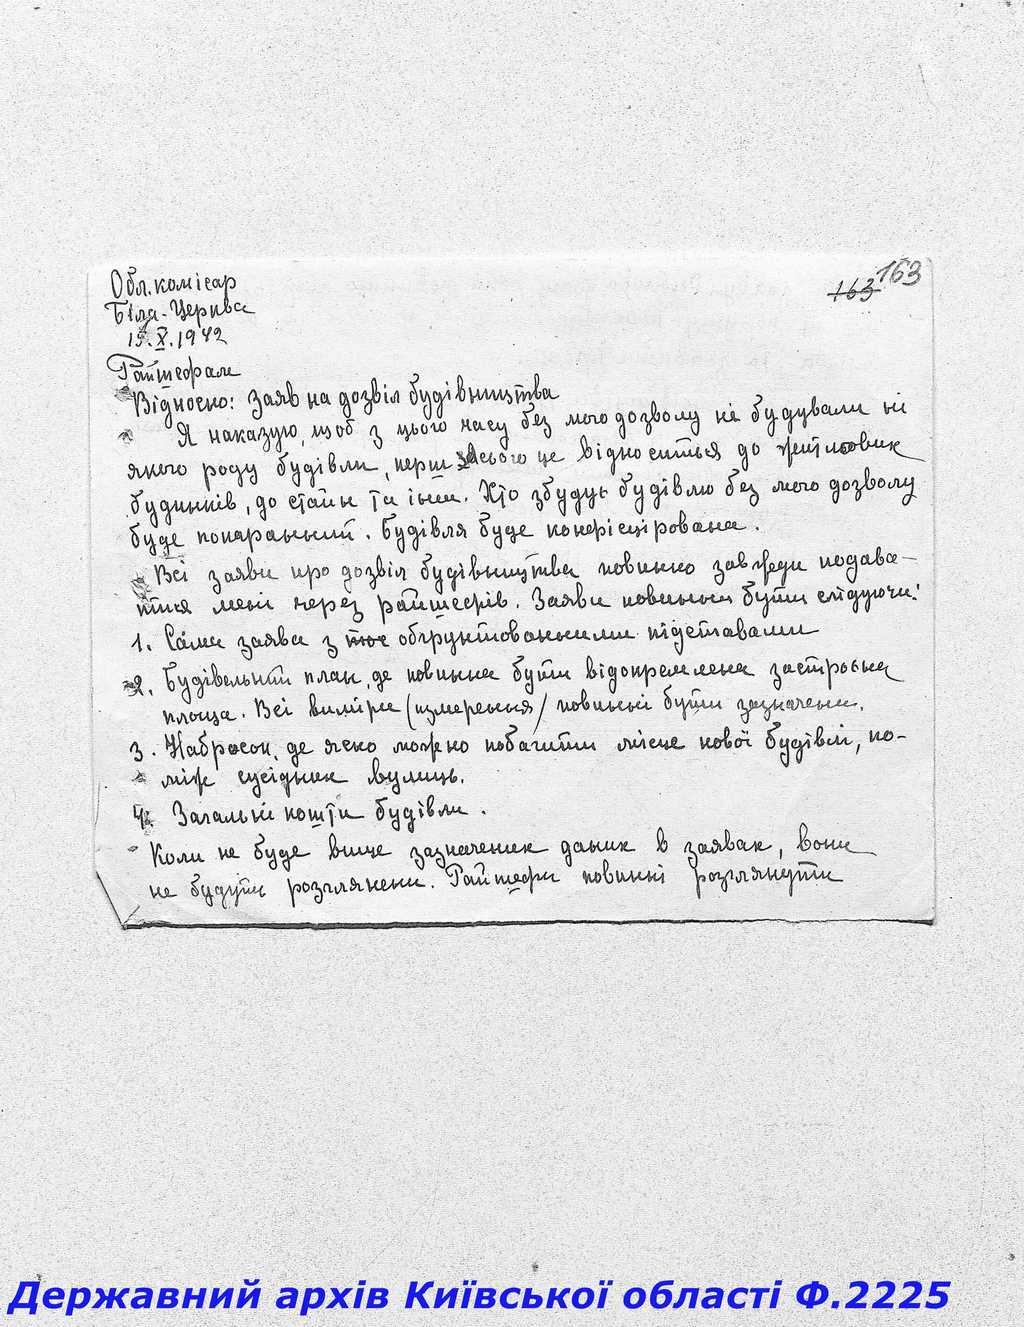 163 163
Обл. комісар
Біла-Церква
15.X.1942
Райшефам
Відносно: Заяв на дозвіл будівництва
Я наказую, щоб з цього часу без мого дозволу не будували ні
якого роду будівли, перш за всього це відноситься до житлових
будинків, до стаєн та інш. Хто збудує будівлю без мого дозволу
буде покараний. Будівля буде конфіскрована.
Всі заяви про дозвіл будівництва повинно завжди подава-
тися мені через райшефів. Заяви повинни бути слідуючи:
1. Сама заява з обгрунтованними підставами
2. Будівельний план, де повинна бути відокремлена застроєна
площа. Всі виміри (измерения) повинні бути зазначени.
3. Набросок, де ясно можно побачити місце нової будівлі, по-
між сусідних вулиць.
4. Загальні кошти будівли.
Коли не буде вище зазначених даних в заявах, вони
не будуть розглянени. Райшефи повинні розглянути
Державний архів Київської області Ф.2225